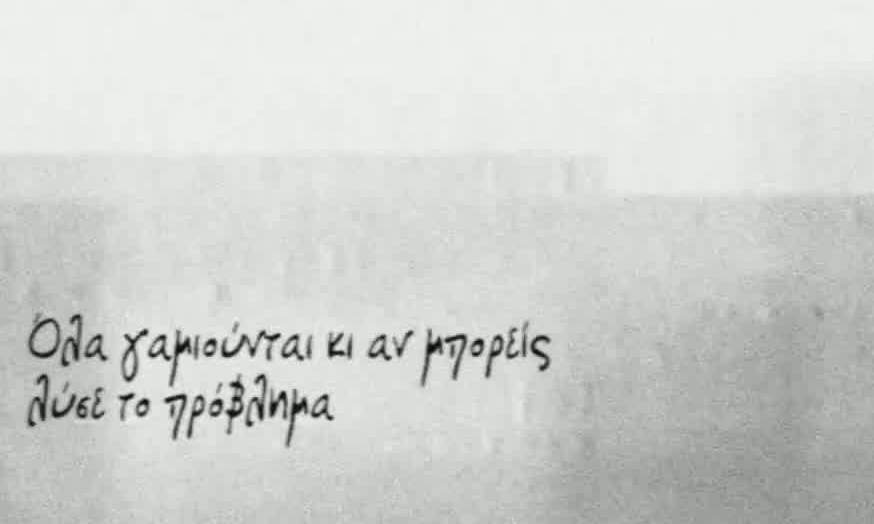 Όλα γαμιούνται κι αν μπορείς
λύσε το πρόβλημα